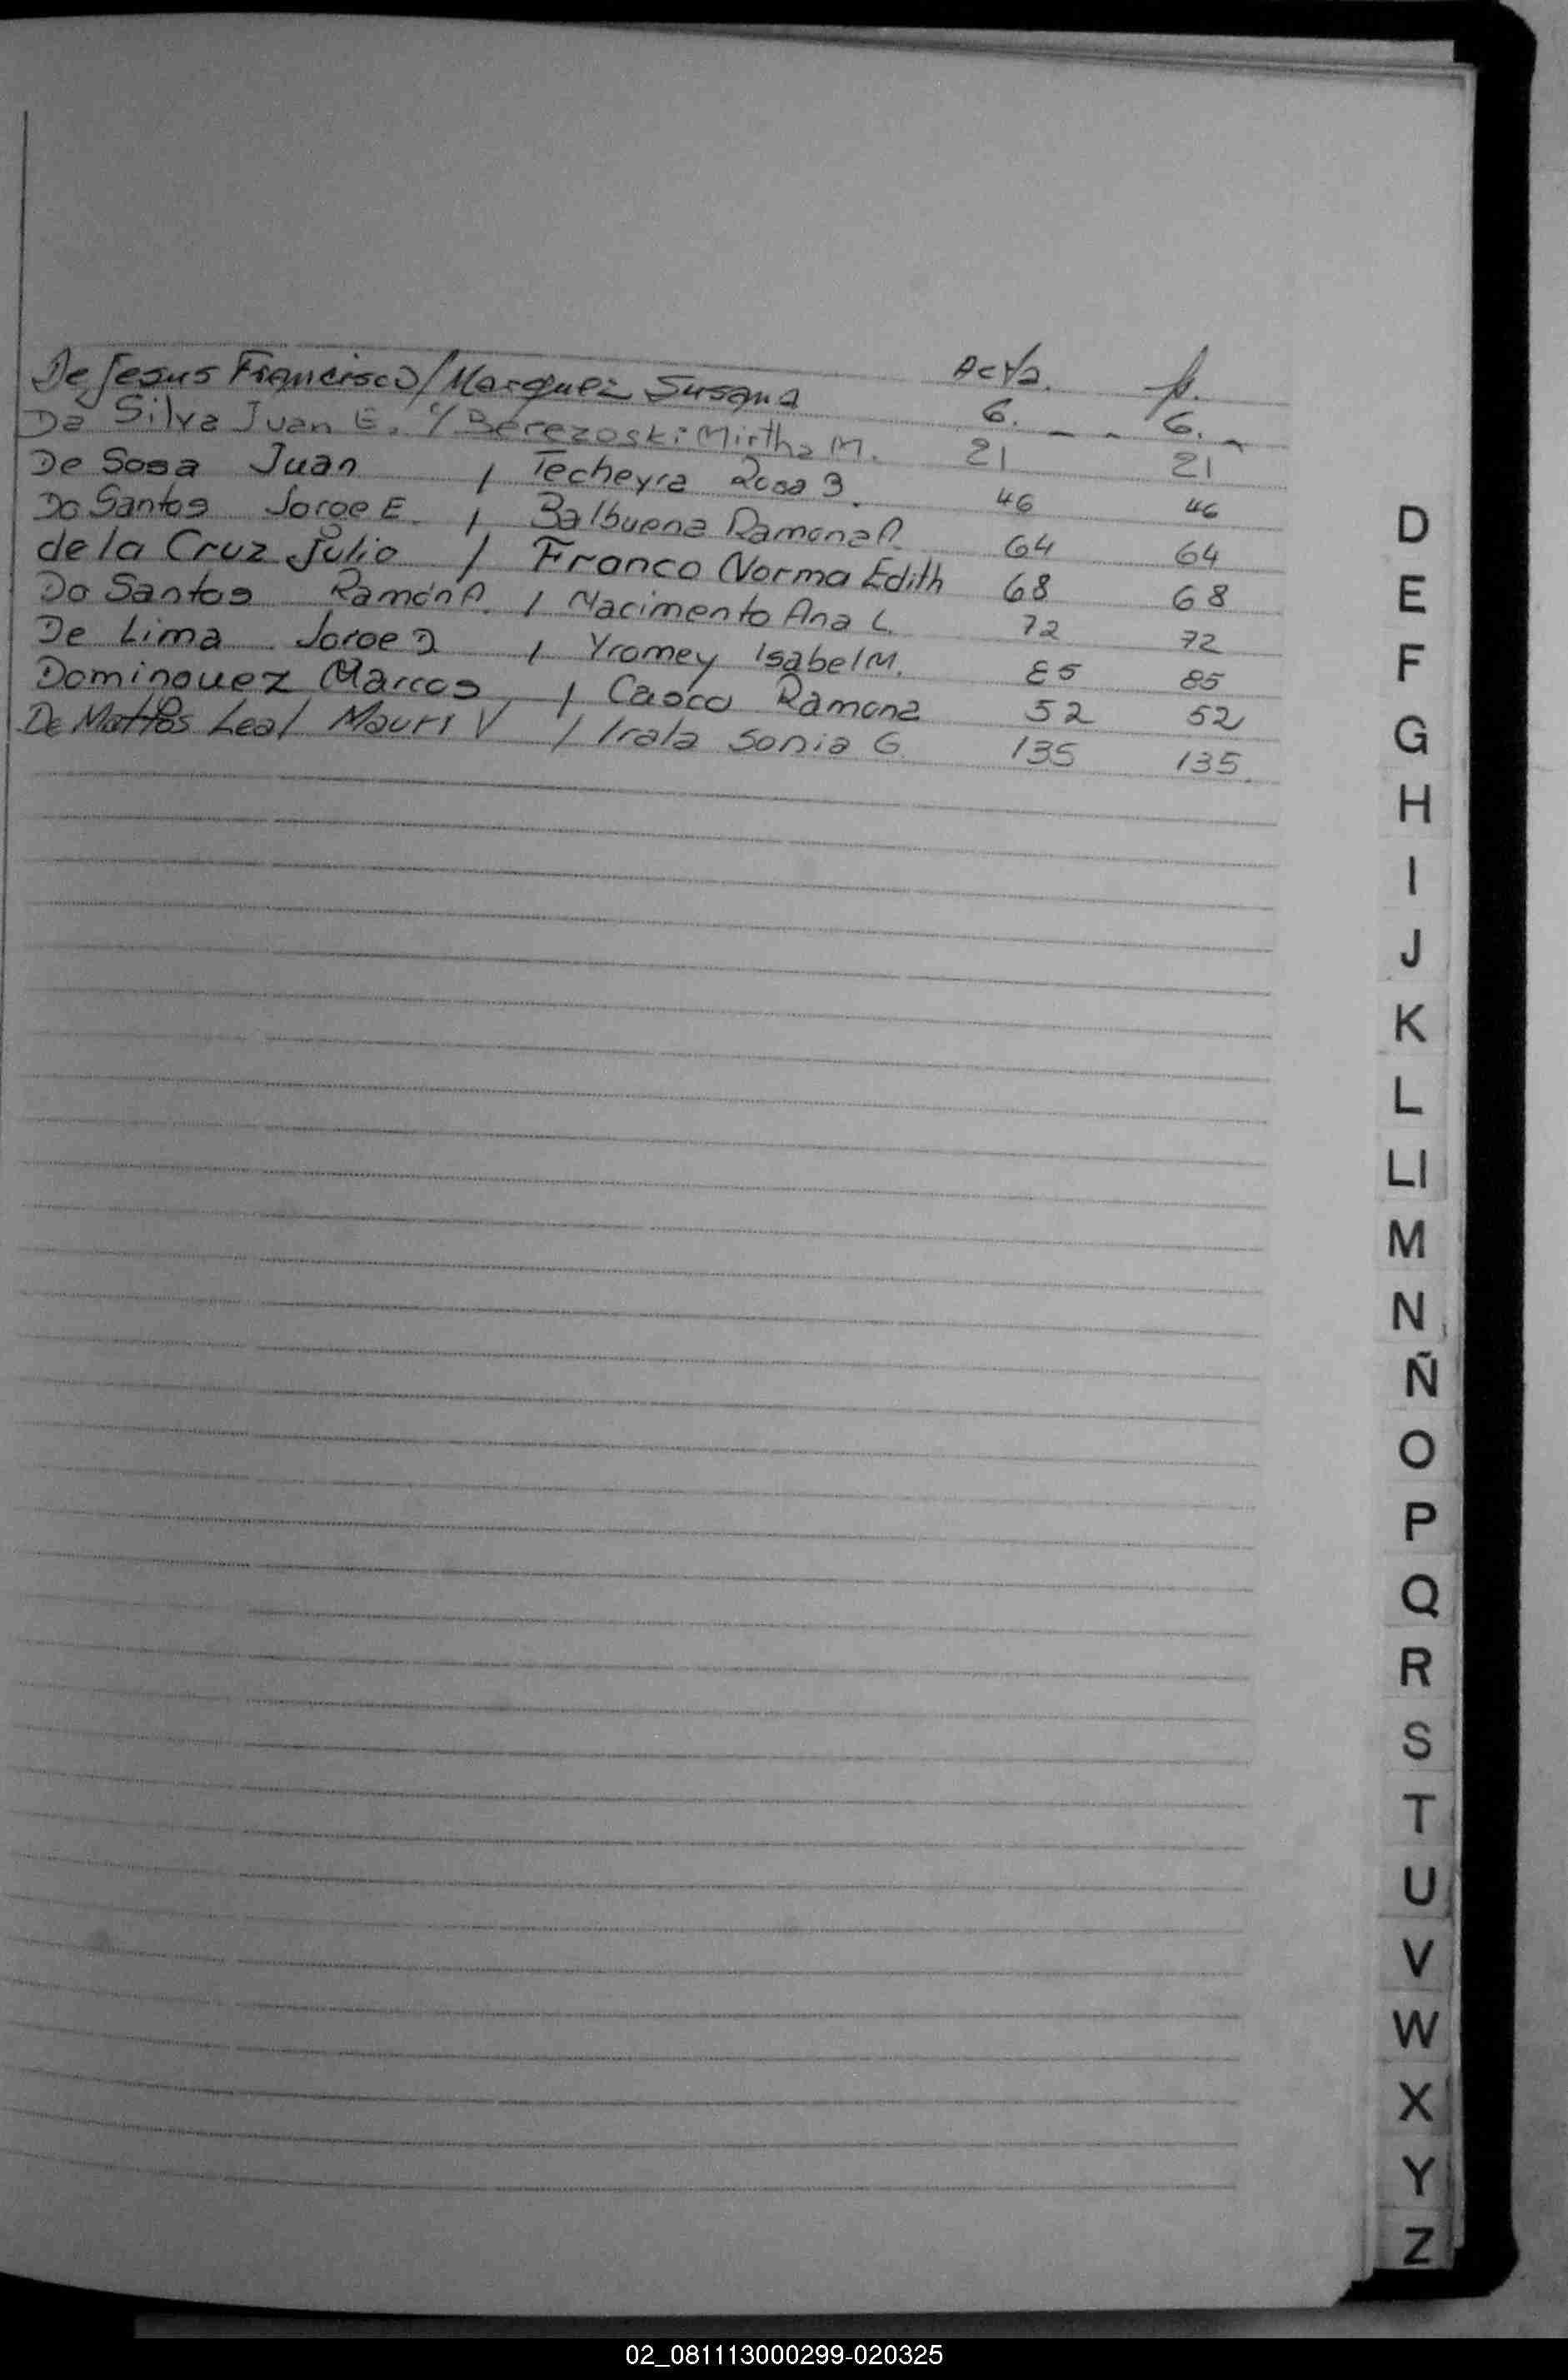 Acta. f.
De Jesus Francisco / Marquez Susana 6. 6.
Da Silva Juan E. c/ Berezoski Mirtha M. 21 21
De Sosa Juan / Techeyra Rosa B. 46 46
Do Santos Jorge E. / Balbuena Ramona A. 64 64
de la Cruz Julio / Franco Norma Edith 68 68
Do Santos Ramón A. / Nacimento Ana L. 72 72
De Lima Jorge D / Yromey Isabel M. 85 85
Dominguez Marcos / Casco Ramona 52 52
De Mattos Leal Mauri V / Irala Sonia G. 135 135.
D
E
F
G
H
I
J
K
L
Ll
M
N
Ñ
O
P
Q
R
S
T
U
V
W
X
Y
Z
02_081113000299-020325